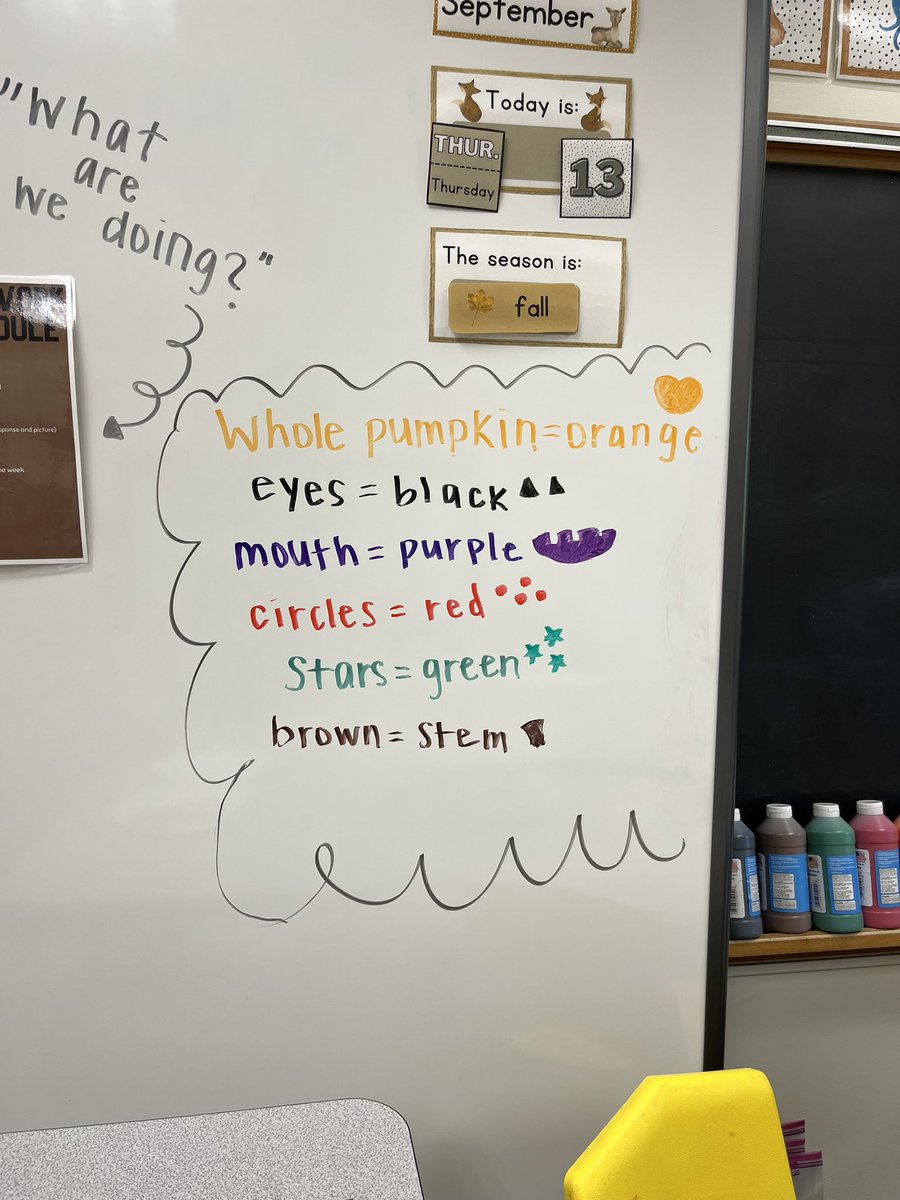 September
Today is:
THUR.
Thursday
13
The season is:
fall
"What
are
we doing?"
WORK
sponse and picture)
he week
Whole pumpkin=orange
eyes = black
mouth = purple
circles = red
Stars = green
brown = stem